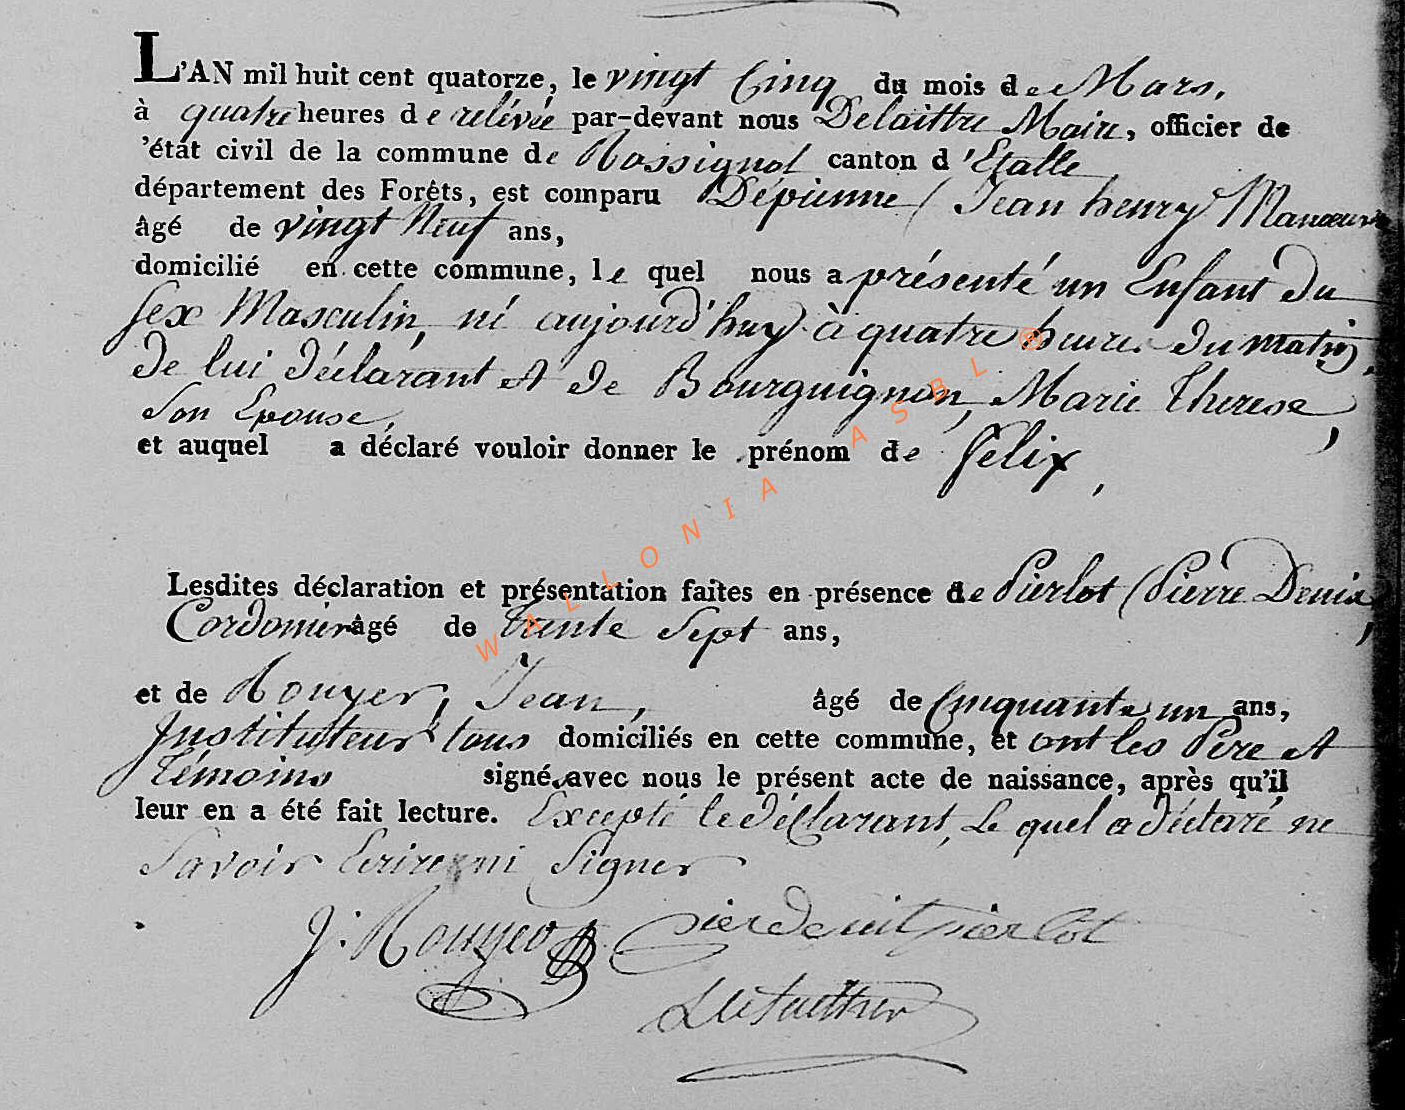 L'AN mil huit cent quatorze, le vingt Cinq du mois de Mars,
à quatre heures de relévée par-devant nous Delaittre Maire, officier de
'état civil de la commune de Rossignol canton d'Etalle
département des Forêts, est comparu Dépienne (Jean henry) Manœuvre
âgé de vingt Neuf ans,
domicilié en cette commune, le quel nous a présenté un Enfant du
sex Masculin, né aujourd'huy à quatre heures du matin,
de lui déclarant et de Bourguignon, Marie Therese,
Son Epouse,
et auquel a déclaré vouloir donner le prénom de Felix,
Lesdites déclaration et présentation faites en présence de Pierlot (Pierre Denis),
Cordonier âgé de trente Sept ans,
et de Rouyer, Jean, âgé de Cinquante un ans,
Instituteur tous domiciliés en cette commune, et ont les Pere et
témoins signé avec nous le présent acte de naissance, après qu'il
leur en a été fait lecture. Excepté le déclarant, Le quel a déclaré ne
Savoir Ecrire ni Signer
J. Rouyer pierdenitpierlot
Delaittre
WALLONIA ASBL ®